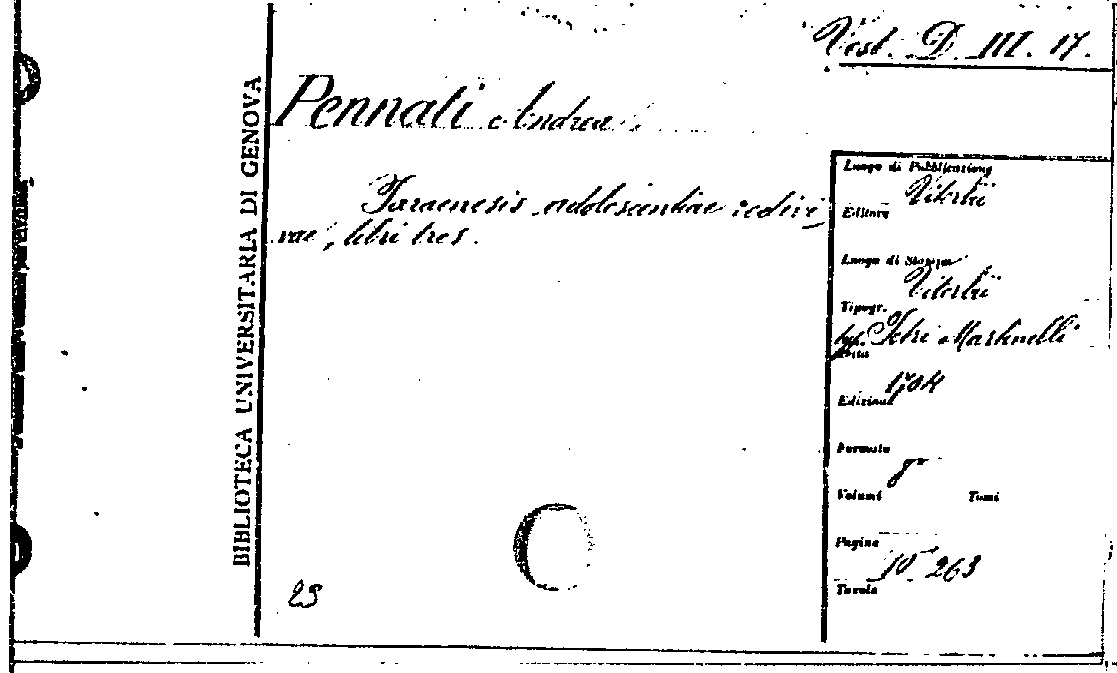 Vest. D. III. 17.
Pennati Andrea.
BIBLIOTECA UNIVERSITARIA DI GENOVA
Paraenesis adolescentiae redivi
vae, libri tres.
Luogo di Pubblicazione
Viterbii
Editore
Luogo di Stampa
Viterbii
Tipogr.
typ. Petri Martinelli
Data
1704
Edizione
Formato
8°
Volumi Tomi
Pagine
10 263
Tavole